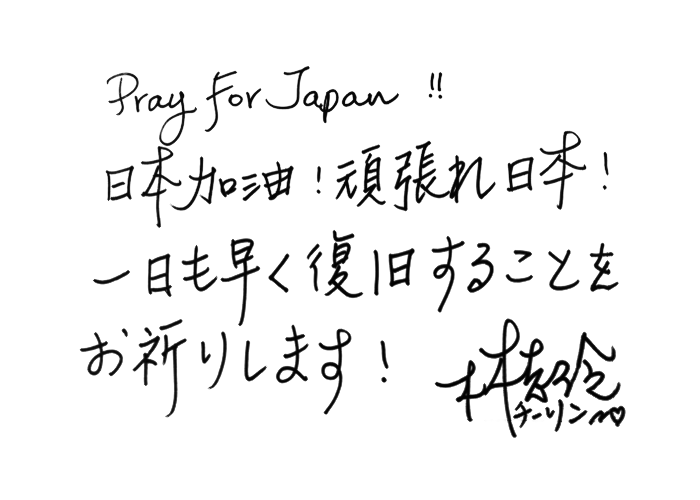 Pray For Japan !!
日本加油!頑張れ日本!
一日も早く復旧することを
お祈りします!
林志玲
チーリン